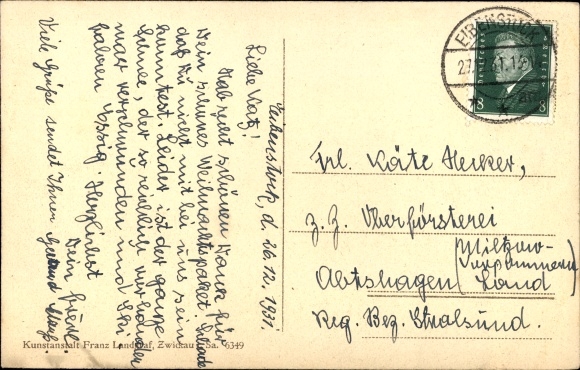 Eibenstock, d. 26.12.1931.
Liebe Katz!
Hab recht schönen Dank für
Dein schönes Weihnachtspaket. Schade
daß Du nicht mit bei uns sein
konntest. Leider ist der ganze
Schnee, der so reichlich vorhanden
war verschwunden und Ski
fahren Essig. Herzlichst
Dein
Viele Grüße sendet Ihnen
EIBENSTOCK
27.
8 8
Frl. Käte Hecker,
z. Z. Oberförsterei
Abtshagen (Miltzow-
Vorpommern
Land)
Reg. Bez. Stralsund.
Kunstanstalt Franz Landgraf, Zwickau i. Sa. 6349